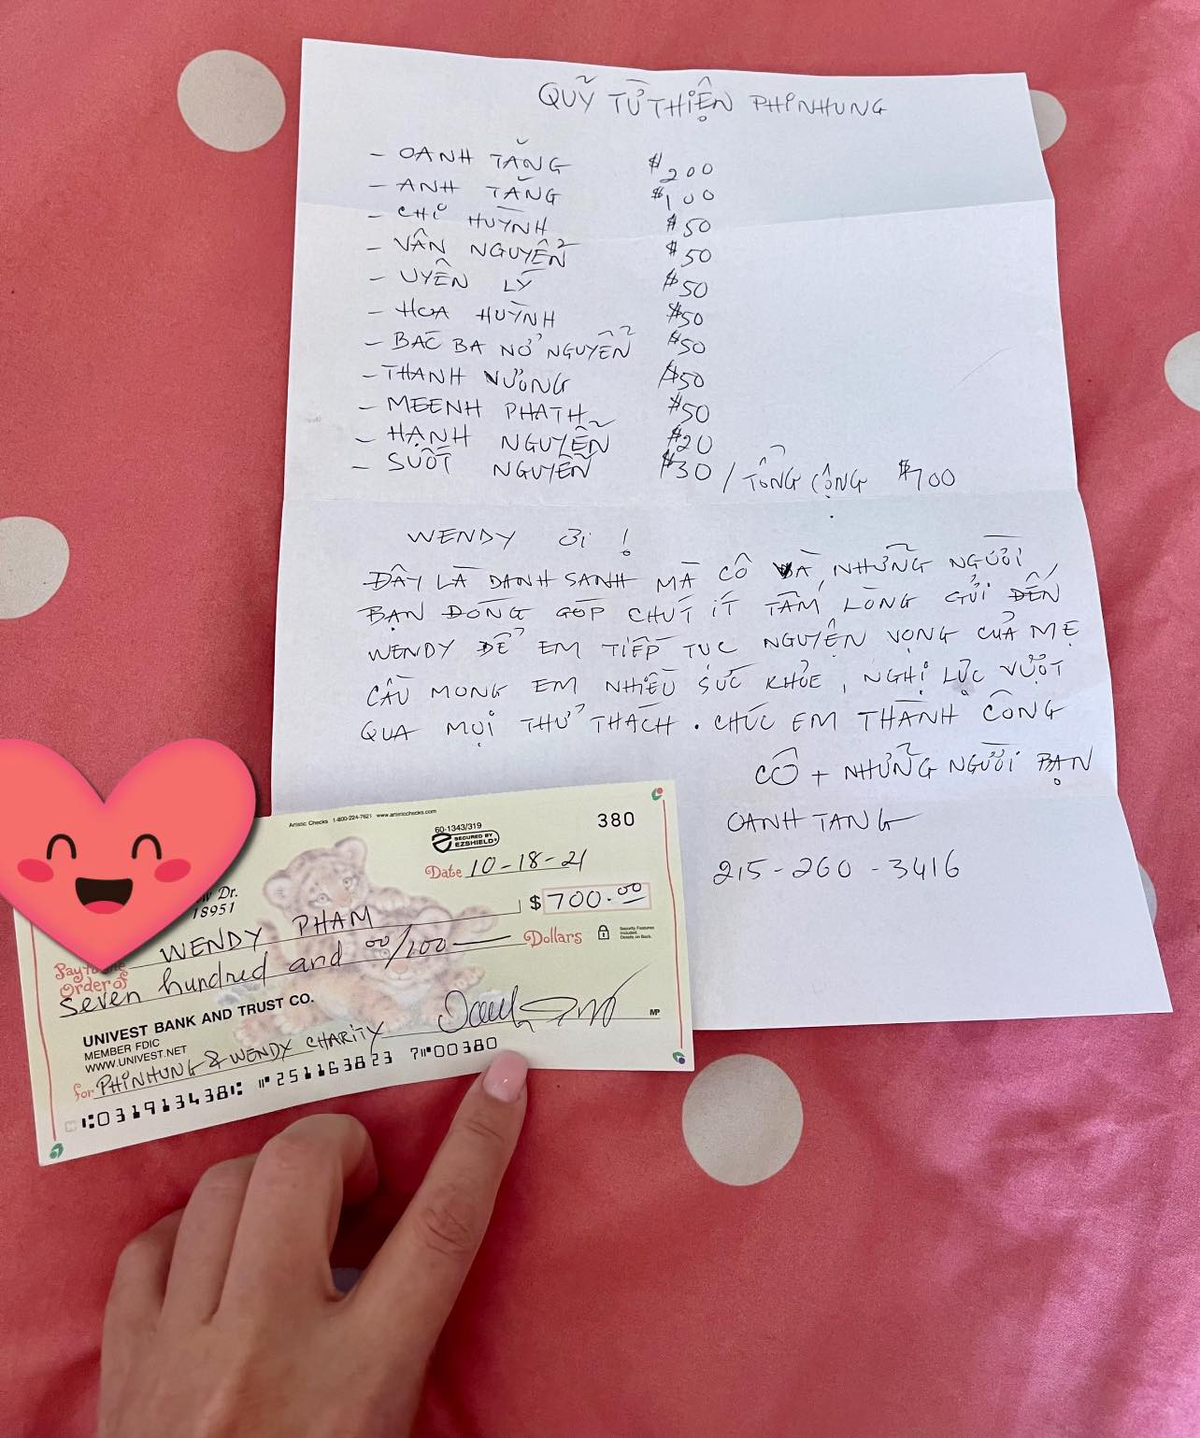 QUỸ TỪ THIỆN PHINHUNG
- OANH TĂNG $200
- ANH TĂNG $100
- CHỈ HUỲNH $50
- VÂN NGUYỄN $50
- UYÊN LÝ $50
- HOA HUỲNH $50
- BÁC BA NỞ NGUYỄN $50
- THANH VƯƠNG $50
- MEENH PHATH $50
- HẠNH NGUYỄN $20
- SUỐT NGUYỄN $30 / TỔNG CỘNG $700
WENDY ƠI !
ĐÂY LÀ DANH SANH MÀ CÔ VÀ NHỮNG NGƯỜI
BẠN ĐÓNG GÓP CHÚT ÍT TẤM LÒNG GỬI ĐẾN
WENDY ĐỂ EM TIẾP TỤC NGUYỆN VỌNG CỦA MẸ
CẦU MONG EM NHIỀU SỨC KHỎE, NGHỊ LỰC VƯỢT
QUA MỌI THỬ THÁCH. CHÚC EM THÀNH CÔNG
CÔ + NHỮNG NGƯỜI BẠN
OANH TANG
215-260-3416
Artistic Checks 1-800-224-7621 www.artisticchecks.com
60-1343/319
SECURED BY
EZSHIELD
380
Date 10-18-21
Dr.
18951
Pay to the
Order of WENDY PHAM $ 700.00
seven hundred and 00/100 Dollars
Security Features
Included.
Details on Back.
UNIVEST BANK AND TRUST CO.
MEMBER FDIC
WWW.UNIVEST.NET
for PHINHUNG & WENDY CHARITY
MP
⑆031913438⑆ ⑈251163823 7⑈00380